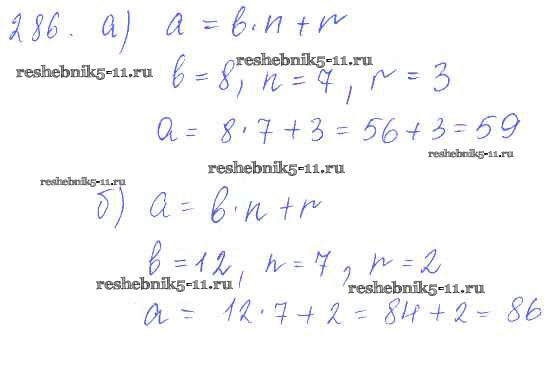 286. а) a = b·n+r
reshebnik5-11.ru
reshebnik5-11.ru
b = 8, n = 7, r = 3
a = 8·7+3 = 56+3 = 59
reshebnik5-11.ru
reshebnik5-11.ru
reshebnik5-11.ru
б) a = b·n+r
b = 12, n = 7, r = 2
reshebnik5-11.ru
reshebnik5-11.ru
a = 12·7+2 = 84+2 = 86